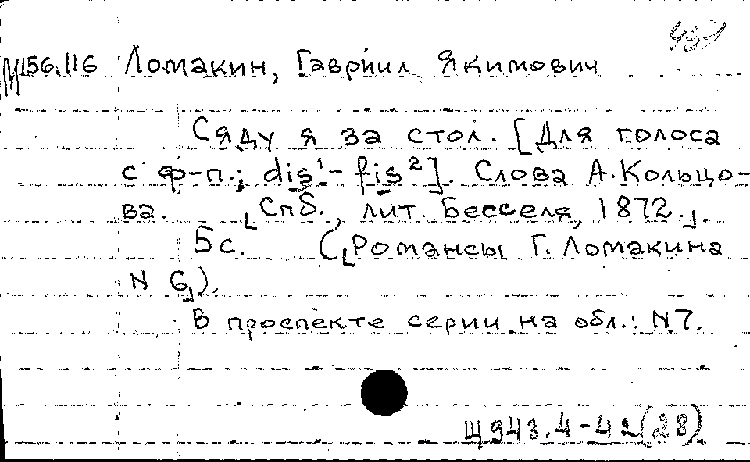 М156.116 Ломакин, Гавриил Якимович
Сяду я за стол. [Для голоса
с ф-п.; dis¹-fis²]. Слова А.Кольцо-
ва. [Спб., лит. Бесселя, 1872.].
5с. ([Романсы Г. Ломакина
N 6]).
В проспекте серии на обл.: N7.
Щ943.4-42(28)